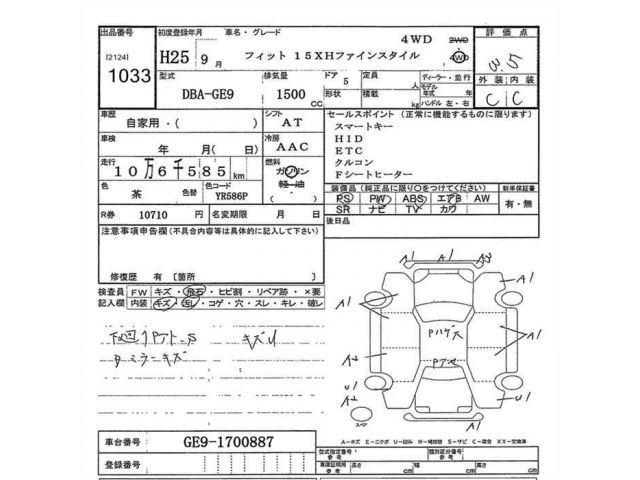 出品番号 初度登録年月 車名・グレード 4WD 2WD 4WD 評価点
[2124] H25 9月 フィット 15XHファインスタイル 3.5
1033 型式 排気量 ドア 5 定員 人 ディーラー・並行 外装 内装
DBA-GE9 1500 CC 形状 積載 kg モデル年式 年 ハンドル 左・右 C C
車歴 シフト セールスポイント(正常に機能するものに限ります)
自家用・( ) AT スマートキー
車検 冷房 HID
年 月( ) AAC ETC
走行 燃料 クルコン
10万6千585 km ガソリン Fシートヒーター
色 色替 色コード 軽・油 装備品(純正品に限り○をつけてください) 新車保証書
茶 YR586P ・( ) PS PW ABS エアB AW 有・無
R券 10710 円 名変期限 月 日 SR ナビ TV カワ
注意事項申告欄(不具合内容等は具体的に記入して下さい) 後日品
修復歴 有〔箇所 〕
検査員 FW キズ・飛石・ヒビ割・リペア跡・×要
記入欄 内装 キズ・汚レ・コゲ・穴・スレ・キレ・破レ
キズU
ミラーキズ
A1 A1 A3
A1 A1
Pハゲ大
A1
A2
U1 U1
A2 A1
スペア
車台番号 GE9-1700887 A－キズ E－エクボ U－凹み W－補修跡 S－サビ C－腐食 XX－交換済
登録番号 型式指定番号 参考 類別区分番号 参考
車庫証明用 参考 長さ cm 幅 cm 高さ cm